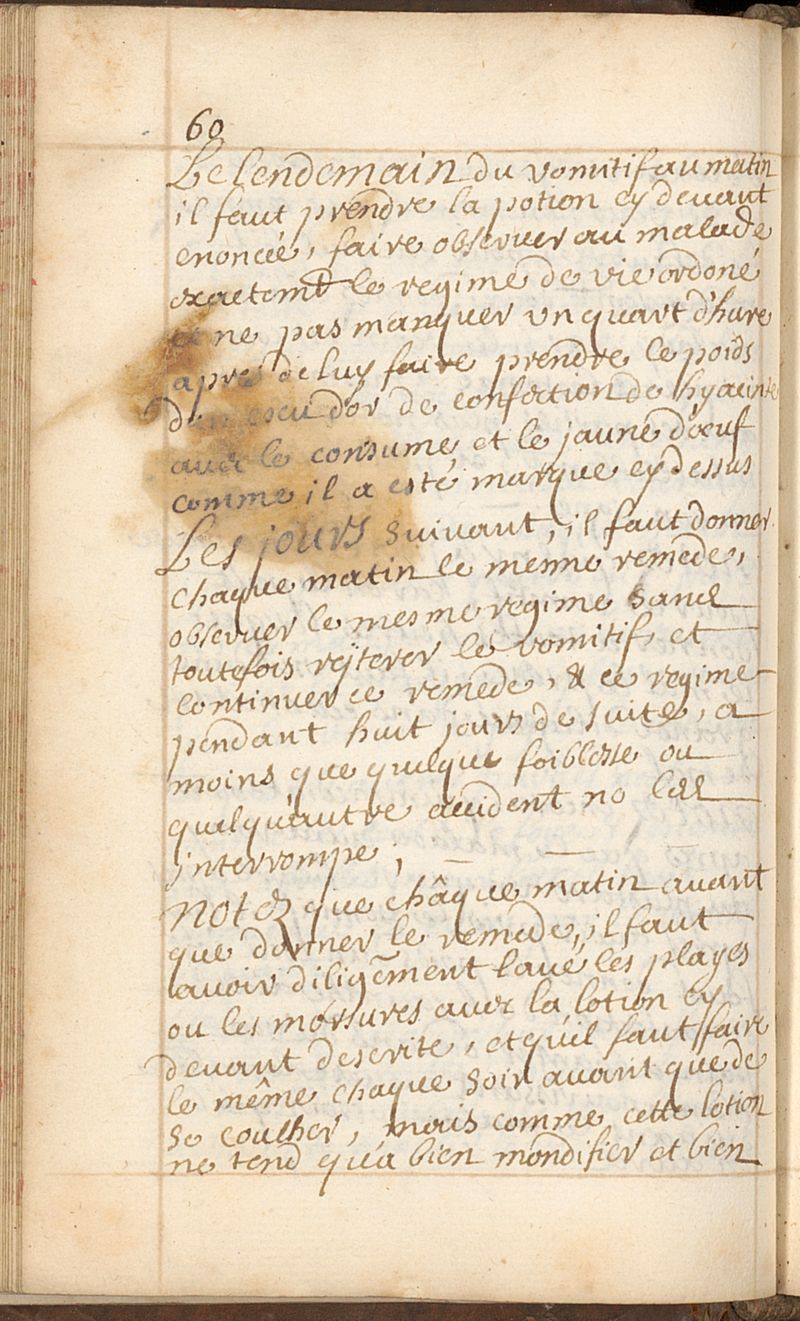 60
Le lendemain du vomitif au matin
il faut prendre la potion cy devant
enoncée, faire observer au malade
exactemt le regime de vie ordoné
et ne pas manquer un quart d'hure
apres de luy faire prendre le poids
d'un escu d'or de confection de hyacinte
avec le consumé et le jaune d'œuf
comme il a esté marque cy dessus
Les jours suivant, il faut donner
chaque matin le mesme remede,
observer le mesme regime sans
toutefois reÿterer le vomitif, et
continuer ce remede, & ce regime
pendant huit jours de suite, a
moins que quelque foiblesse ou
quelqu'autre accident no les
jnterrompe;
notez que châque matin avant
que donner le remede, il faut
avoir diligement lavé les playes
ou les morsures avec la lotion cy
devant descrite, et qu'il faut faire
le même chaque soir avant que de
se coucher, mais comme cette lotion
ne tend qu'a bien mondifier et bien